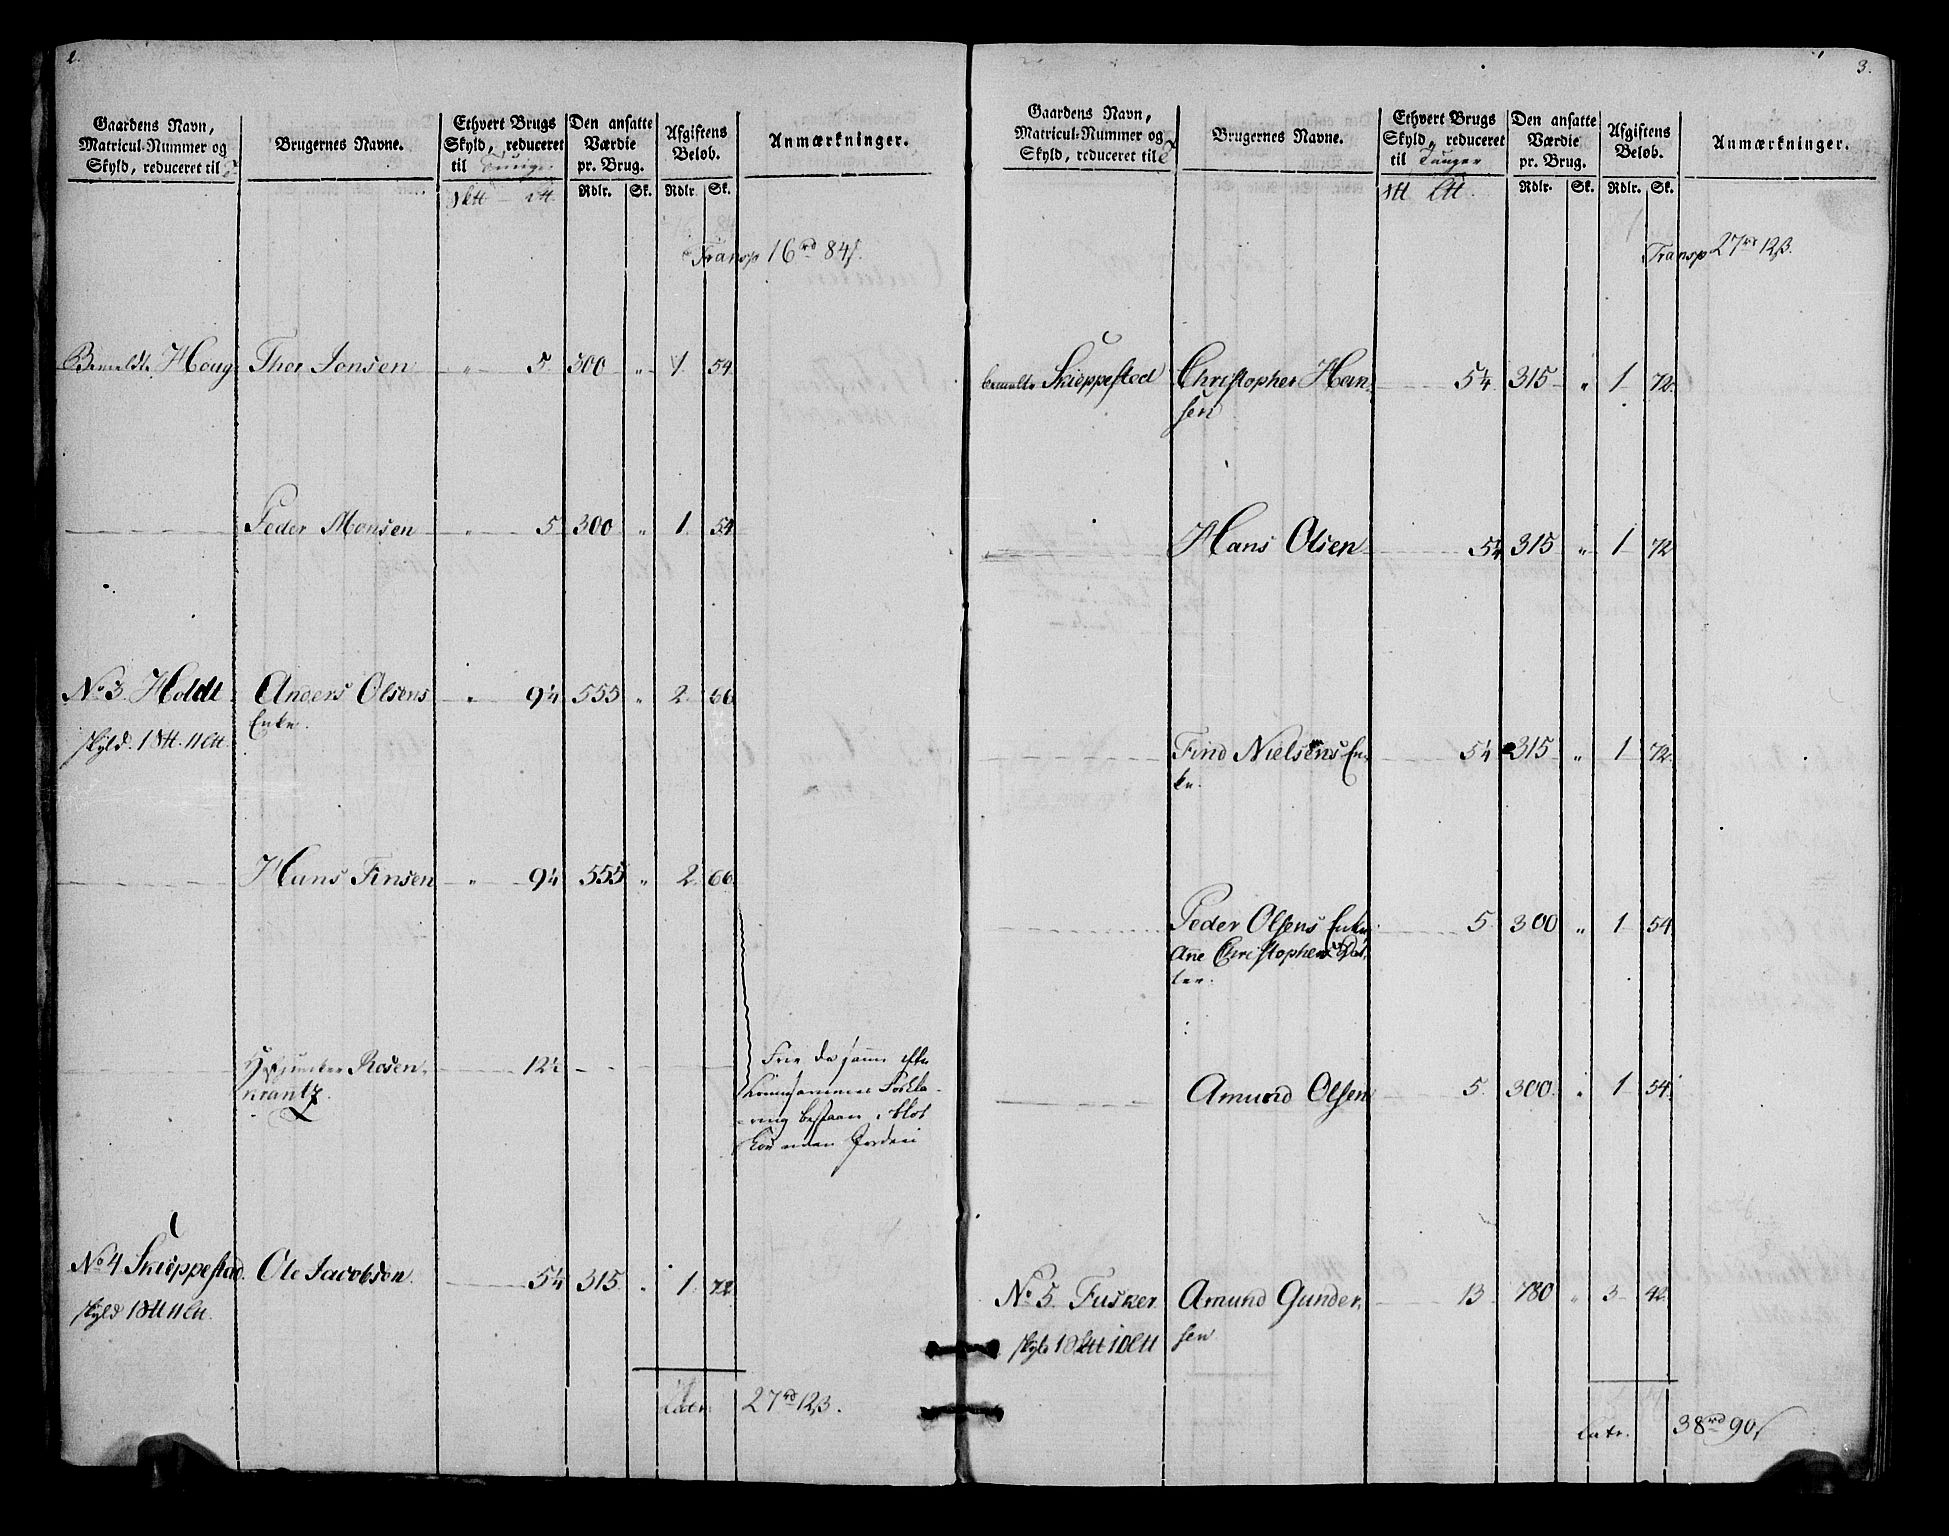 2.
Gaardens Navn, Matricul-Nummer og Skyld, reduceret til
Brugernes Navne.
Ethvert Brugs Skyld, reduceret til Tunger
Den ansatte Værdie pr. Brug.
Afgiftens Beløb.
Anmærkninger.
Rdlr. Sk. Rdlr. Sk.
Transp 16rd 84s.
Bemeldte Houg Thor Jonsen " 5. 300 " 1 54
Peder Monsen " 5 300 " 1. 54
No 3. Holdt Anders Olsens " 9¼ 555 " 2. 66
Enke.
skyld. 1 8tt. 11 Ltt.
Hans Finsen " 9¼ 555 " 2. 66
Hofjunker Rosen- 12½
krantz.
Frie da samme efter
Commissionens Forkla-
ring bestaar i blot
Skov uden Jorder
No 4 Skiøppestad. Ole Jacobsen 5¼ 315 " 1. 72
skyld 1 8tt 11 Ltt.
Latr. 27rd 12ß.
3.
Gaardens Navn, Matricul-Nummer og Skyld, reduceret til
Brugernes Navne.
Ethvert Brugs Skyld, reduceret til Tunger
Den ansatte Værdie pr. Brug.
Afgiftens Beløb.
Anmærkninger.
Rdlr. Sk. Rdlr. Sk.
Transp 27rd 12ß.
bemelte Skiøppestad Christopher Han- 5¼ 315 " 1 72
sen
Hans Olsen 5¼ 315 " 1 72
Find Nielsens En- 5¼ 315 " 1 72
ke.
Peder Olsens Enke 5 300 " 1 54
Ane Christophers Dat-
ter.
Amund Olsen 5 300 " 1 54
No 5. Fusker Amund Gunder- 13 780 " 3 42
skyld 1 8tt 10 Ltt sen
Latr. 38rd 90s